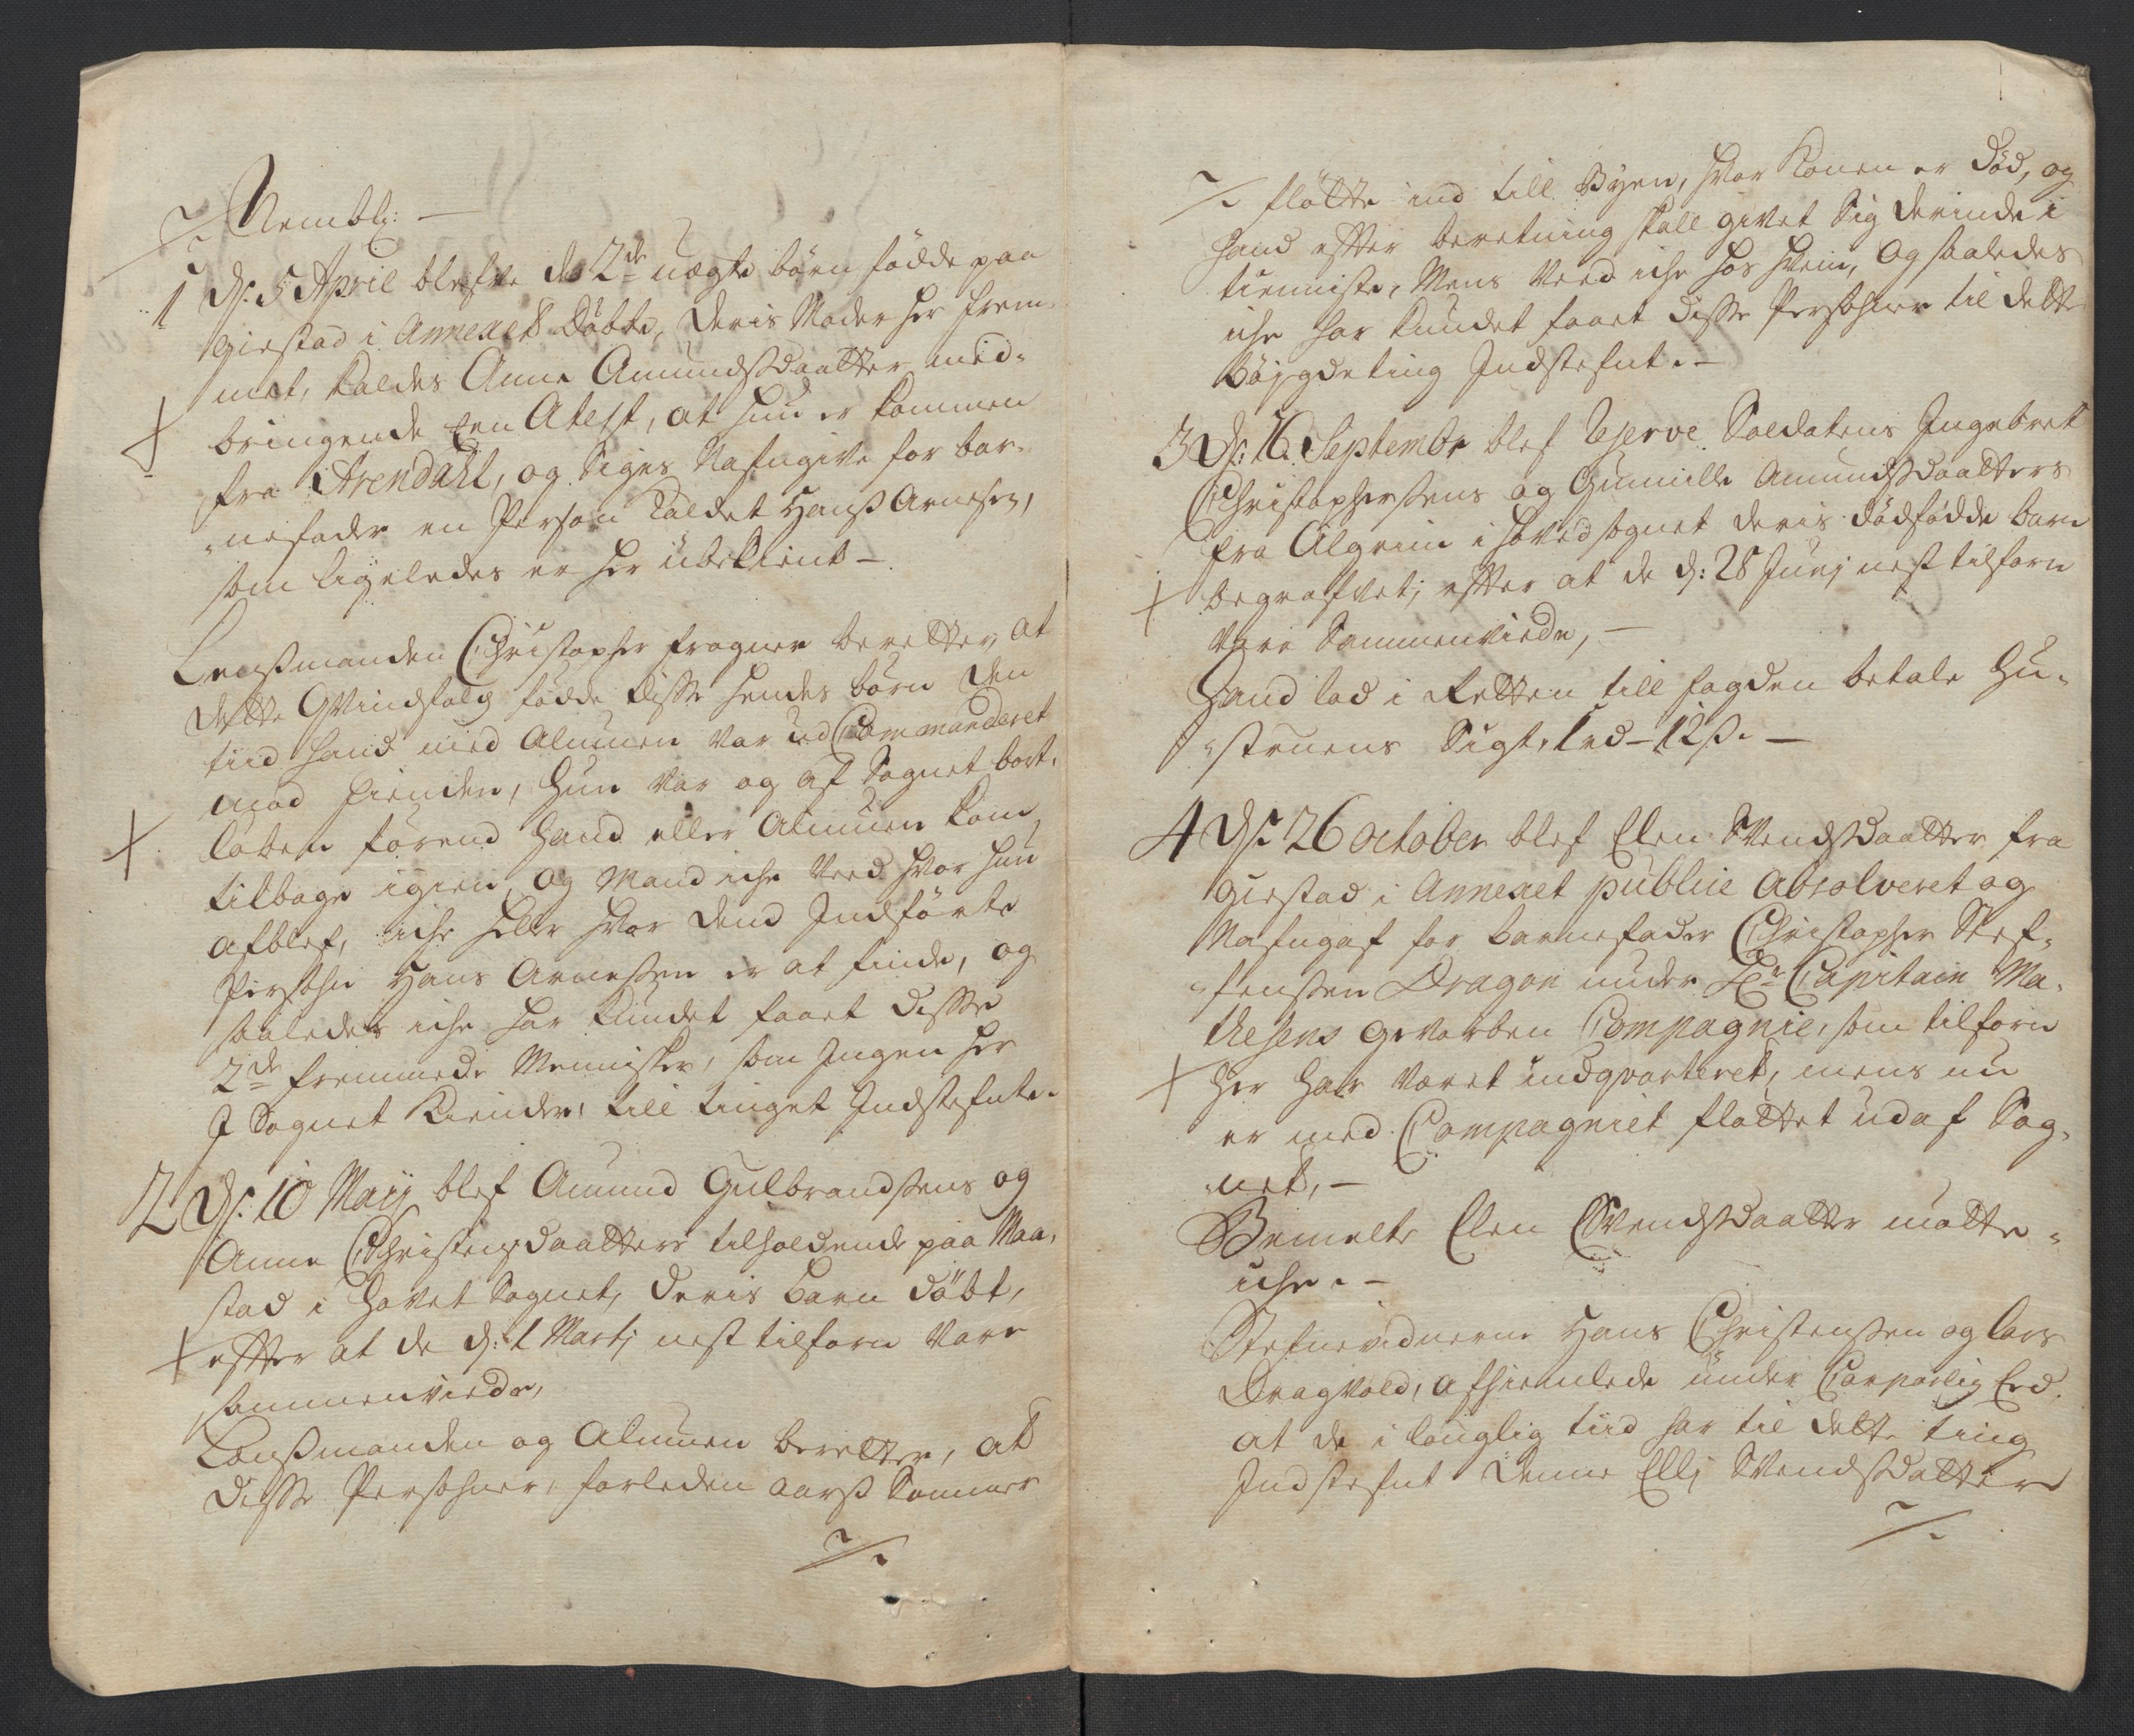 Nembl: —
1 d: 5 April blefve de 2de uægte börn födde paa
Giestad i Annexet döbte, deris Moder her frem-
met, kaldes Anne Amundsdaatter med-
bringende Een Atest, at hun er kommen
fra Arendahl, og siges Nafngive for bar-
nefader en Person kaldet Hans Arnesen,
som ligeledes er her übekient —
Lensmanden Christopher Fragner beretter, at
dette Qvindfolch födde disse hendes börn den
tiid hand med Almuen var ud Commanderet
mod fienden, hun var og af Sognet bort-
löben förend hand eller Almuen kom
tilbage igien, og mand iche veed hvor hun
afblef, iche heller hvor dend Indförte
Persohn Hans Arnessen er at finde, og
saaledes iche har kundet faaet disse
2de fremmede Mennisker, som Ingen her
J Sognet kiender, till tinget Jndstefnte.
2 d: 10 Maij blef Amund Gulbrandsens og
Anne Christensdaatters tilholdende paa Maa-
stad i Hovet Sognet, deris barn döbt,
efter at de d: 1 Martj nest tilforn vare
sammenviede,
Lensmanden og Almuen beretter, at
disse Persohner forleden aars Sommer
flötte ind till Byen, hvor konen er död, og
hand efter beretning skall givet sig derinde i
tienniste, Mens veed iche hos hvem, og saaledes
iche har kundet faaet disse Persohner til dette
böijgdeting Indstefnt. —
3 d: 16 Septembr blef Reserve Soldatens Ingebret
Christophersens og Gunnille Amundsdaatters
fra Algrim i hovedsognet deris dödfödde barn
begrafvet, efter at de d: 28 Junj nest tilforn
vare Sammenviede, —
Hand lod i Retten till fogden betale Hu-
struens Sigt, 1 rd - 12 ß. —
4 d: 26 October blef Elen Svendsdaatter fra
Giestad i Annexet publice Absolveret og
Nafngaf for barnefader Christopher Stef-
fensen Dragon under Hr Capitain Ma-
thesens gevorben Compagnie, som tilforn
her har været indqvarteret, mens nu
er med Compagniet flöttet ud af Sog-
net, —
Bemelte Elen Svendsdaatter mötte
iche. —
Stefnevidnerne Hans Christensen og Lars
Dragvold, afhiemlede under Corporlig Eed,
at de i louglig tiid har til dette ting
Indstefnt denne Elli Svendsdatter